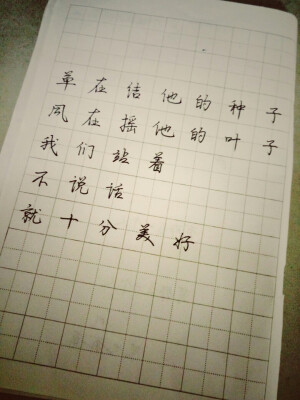 草在结他的种子
风在摇他的叶子
我们站着
不说话
就十分美好